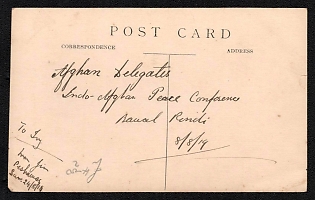 POST CARD
CORRESPONDENCE
ADDRESS
Afghan Delegates
Indo-Afghan Peace Conference
Rawal Pindi
8/8/19
To Ivy
from Jim
Peshawar